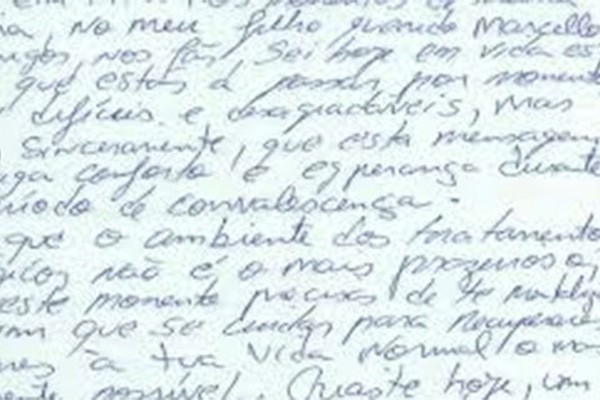 no meu filho quando Marcello
nos fãs, Sei hoje em vida es
que estás a passar por momento
difíceis e desagradáveis, mas
sinceramente, que esta mensagem
conforto e esperança durante
ríodo de convalescença.
que o ambiente dos tratamento
não é o mais prazeroso,
este momento precisas de te
que se cuidas para recuperares
à tua vida normal o mais
possível. Quaste hoje, um